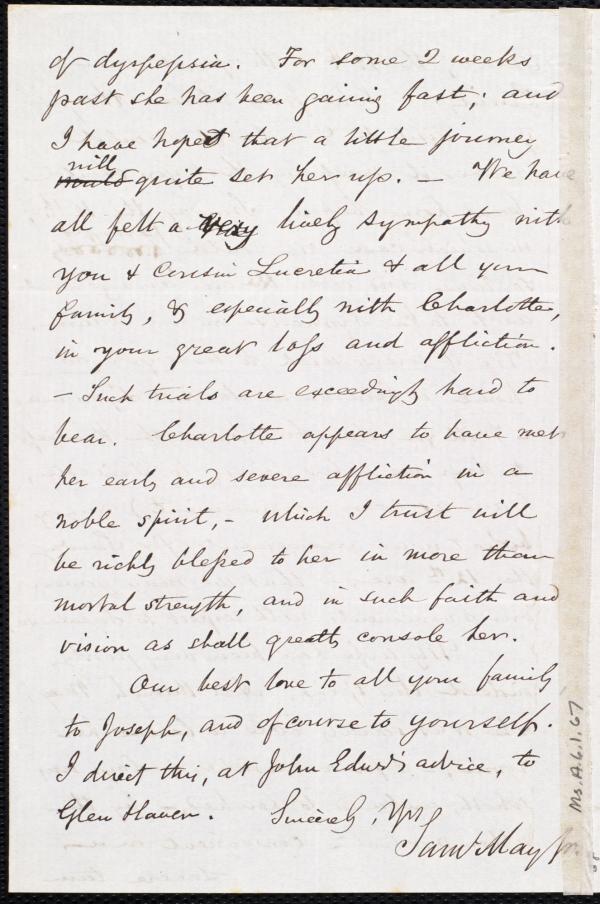 of dyspepsia. For some 2 weeks
past she has been gaining fast; and
I have hoped that a little journey
will
would quite set her up. — We have
all felt a very lively sympathy with
you & Cousin Lucretia & all your
family, & especially with Charlotte,
in your great loss and affliction.
— Such trials are exceedingly hard to
bear. Charlotte appears to have met
her early and severe affliction in a
noble spirit, – which I trust will
be richly blessed to her in more than
mortal strength, and in such faith and
vision as shall greatly console her.
Our best love to all your family
to Joseph, and of course to yourself.
I direct this, at John Edwd's advice, to
Glen Haven. Sincerely, Yrs
Saml May Jr.
Ms.A.6.1.67